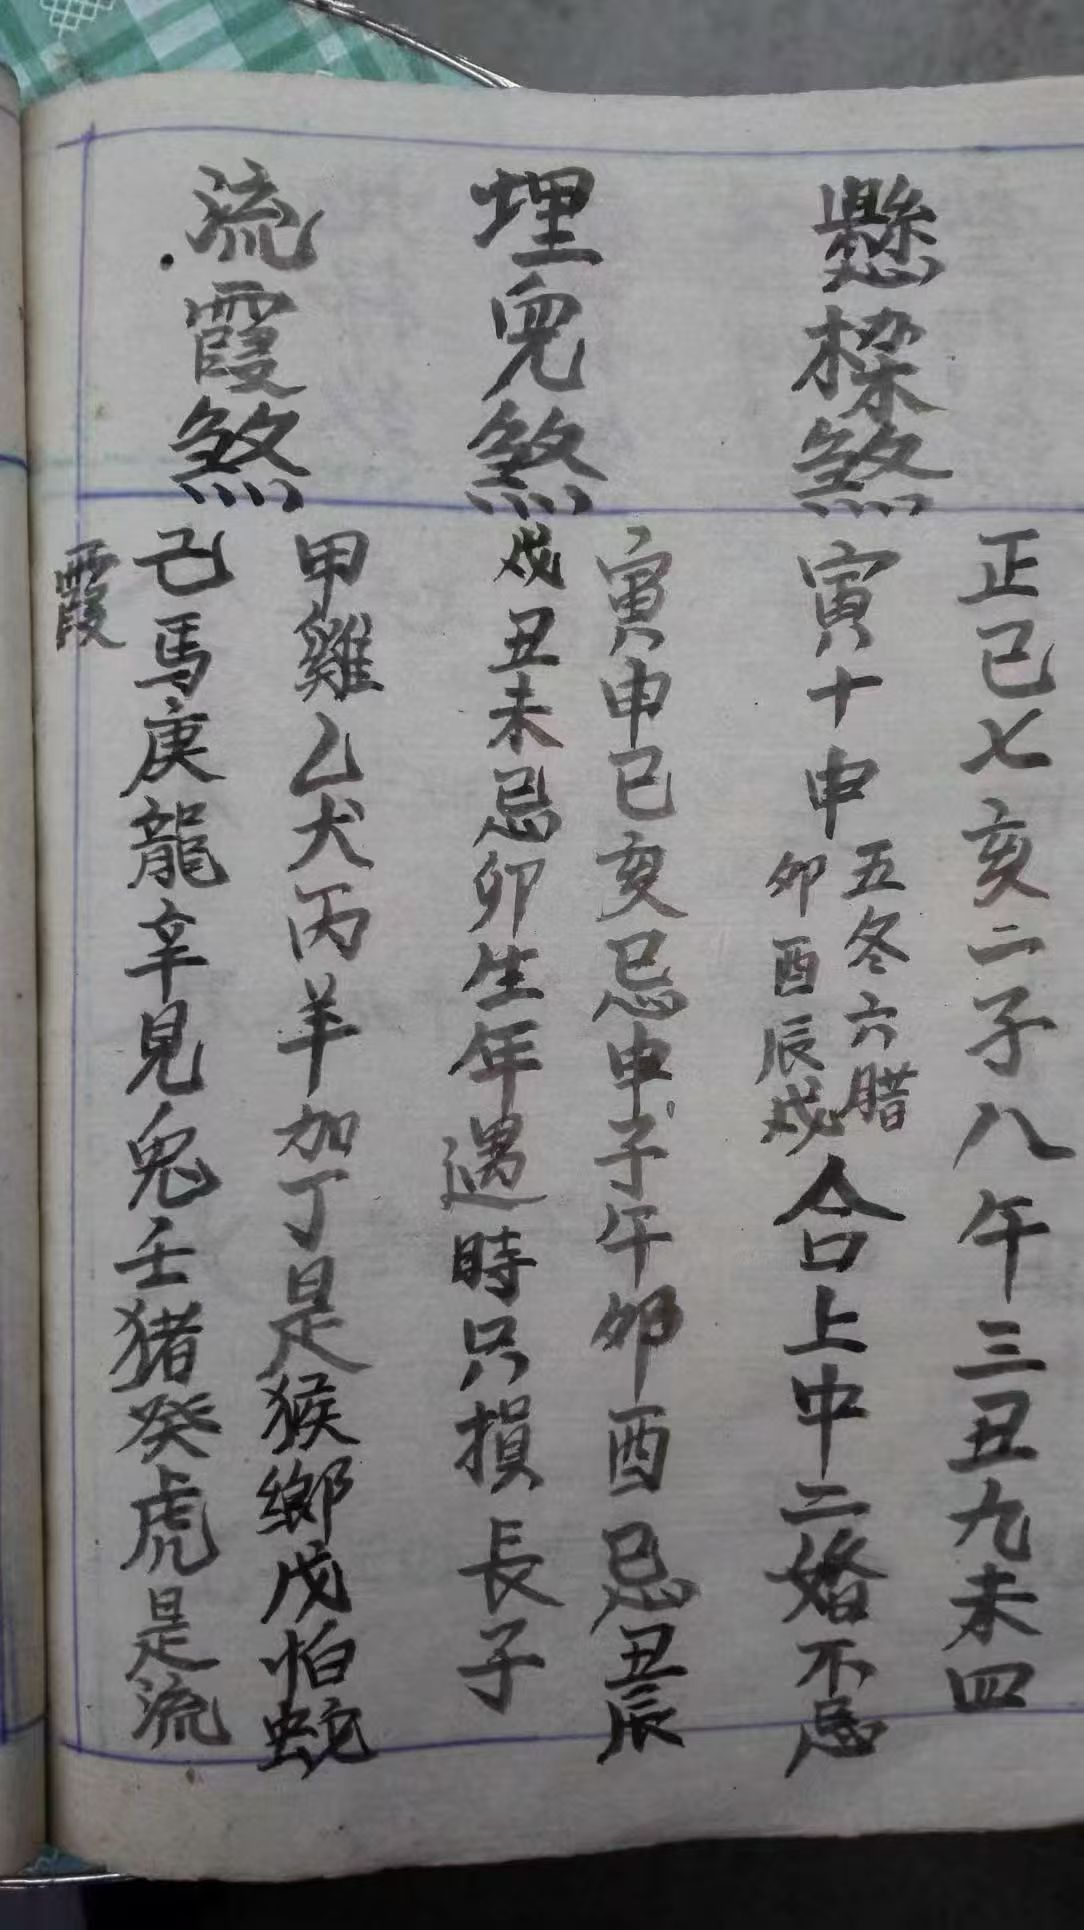 懸樑煞
正巳七亥二子八午三丑九未四
寅十申
五冬六腊
卯酉辰戍
合上中二婚不忌
埋兒煞
寅申巳亥忌申子午卯酉忌丑辰
戍丑未忌卯生年遇時只損長子
流霞煞
甲雞乙犬丙羊加丁是猴鄉戊怕蛇
己馬庚龍辛見兔壬猪癸虎是流
霞